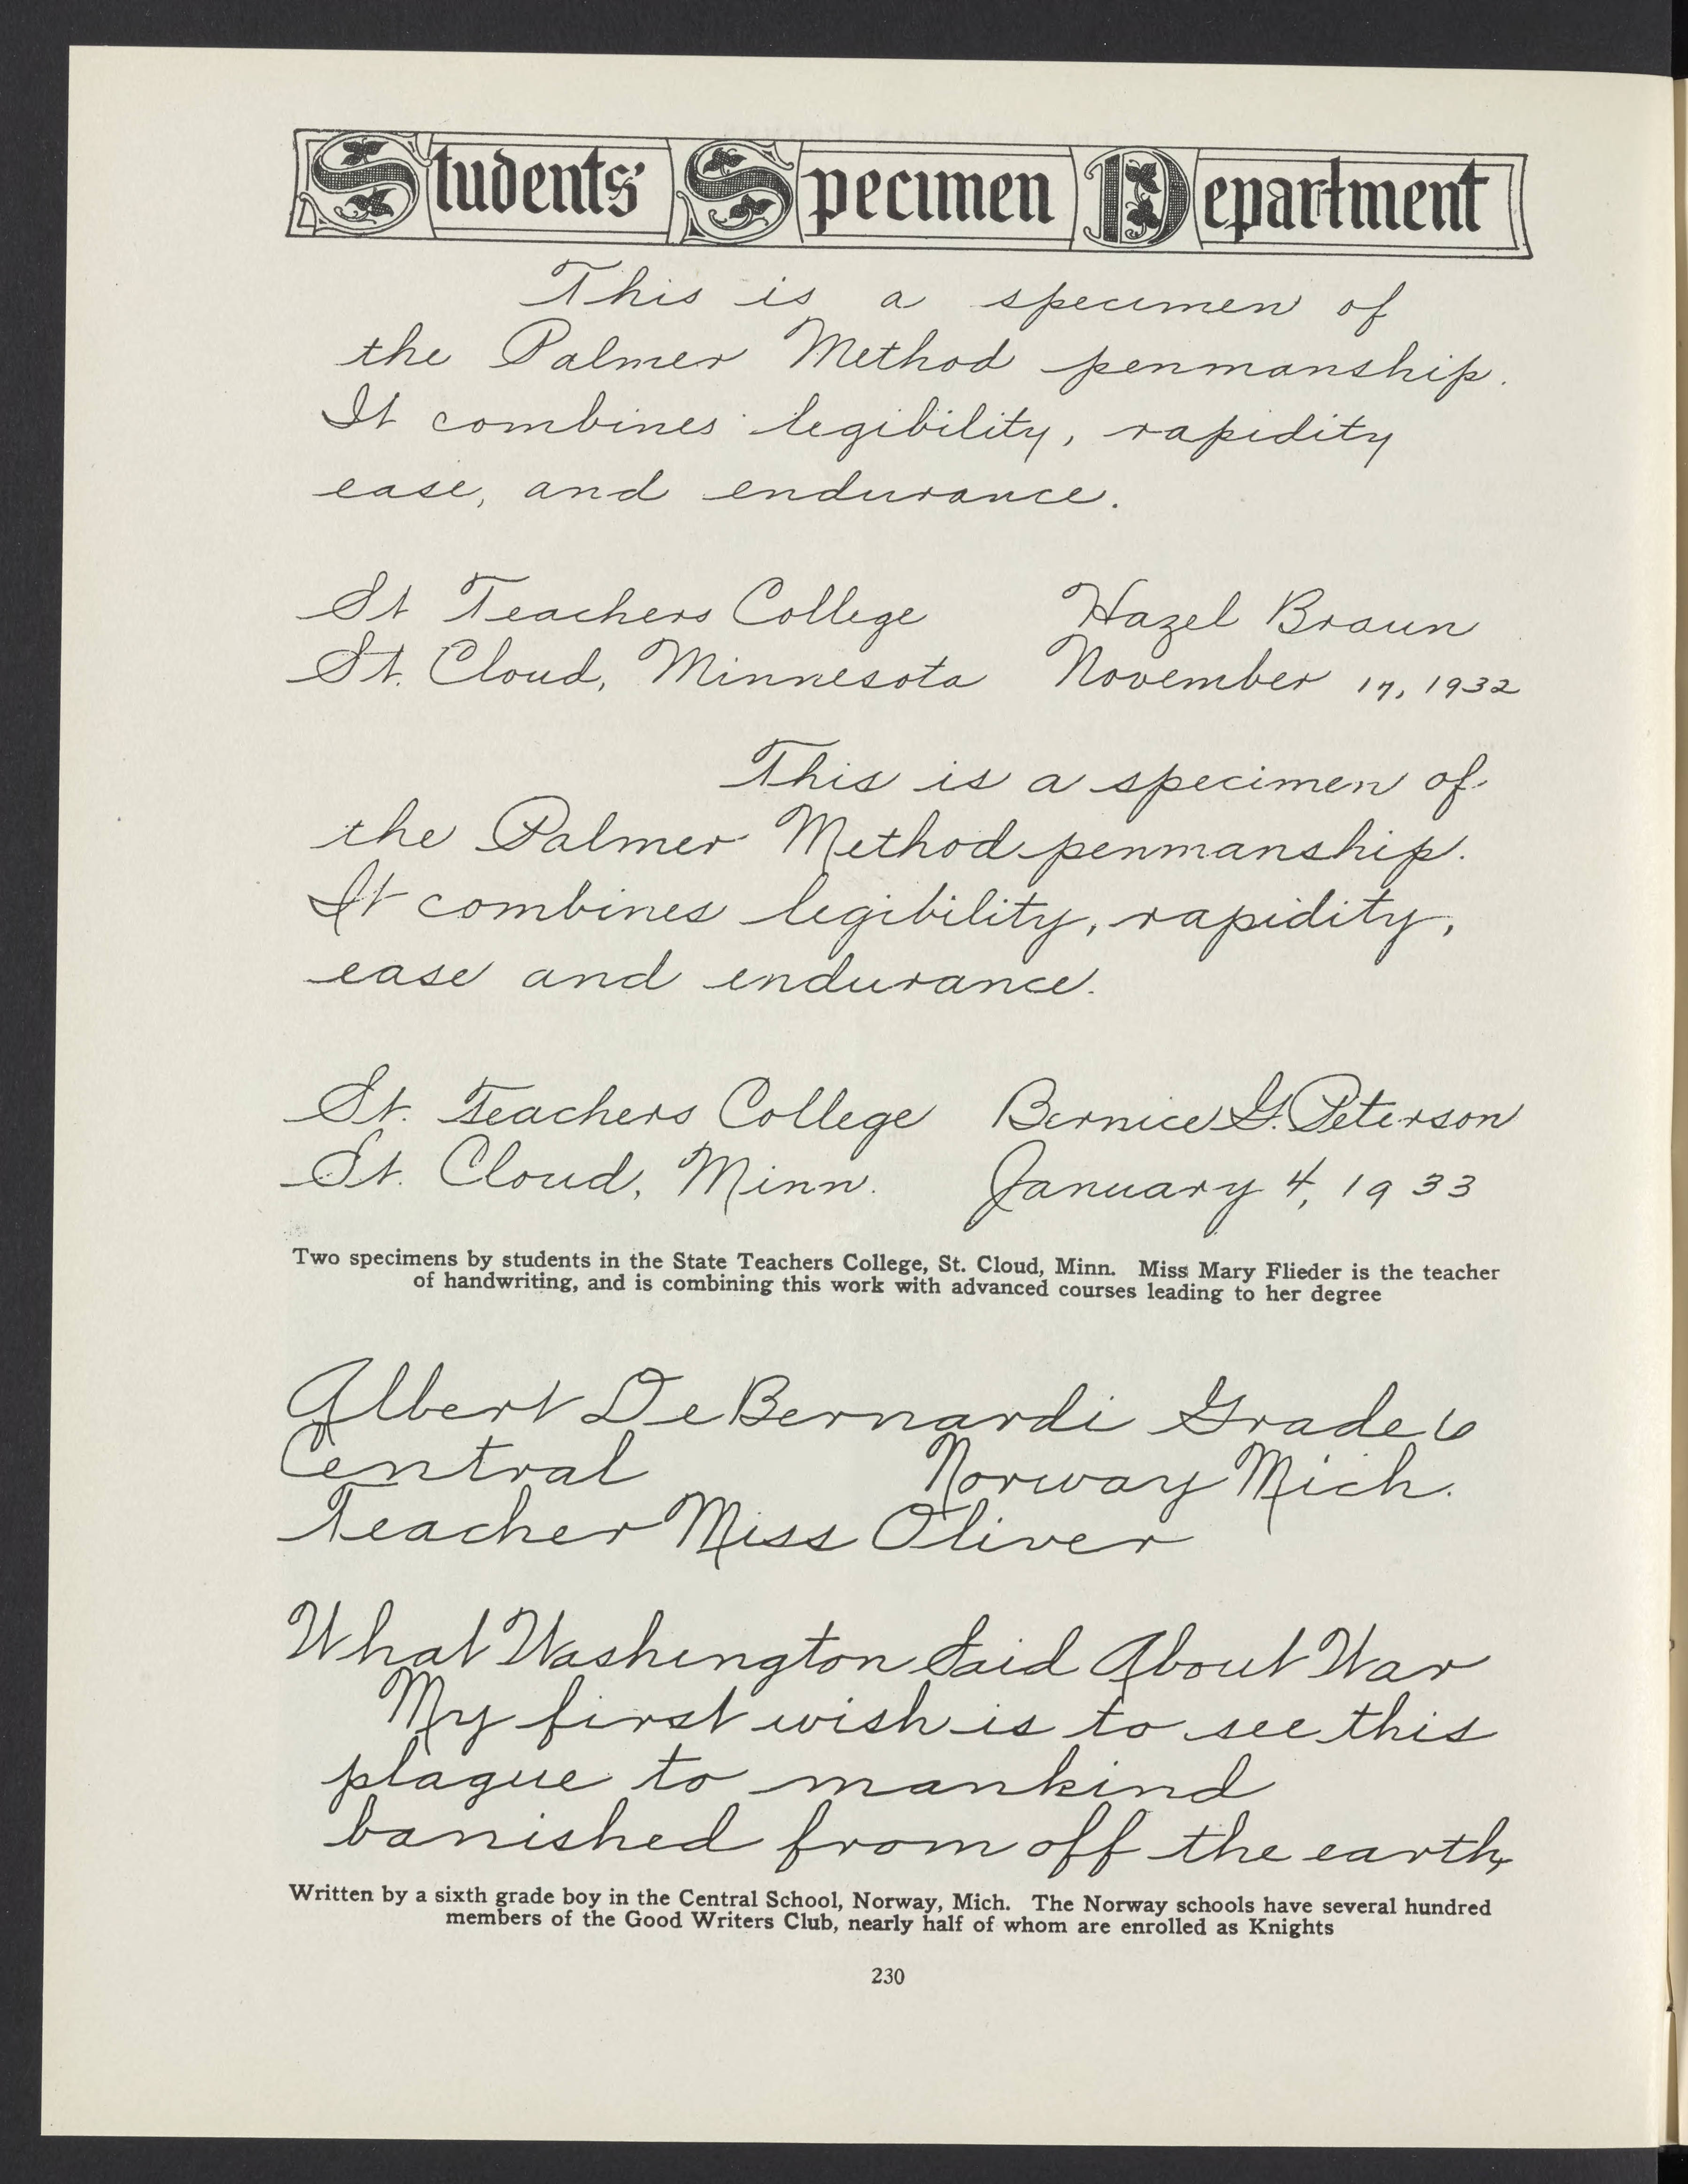 Students' Specimen Department
This is a specimen of
the Palmer Method penmanship.
It combines legibility, rapidity
ease, and endurance.
St Teachers College Hazel Braun
St. Cloud, Minnesota November 17, 1932
This is a specimen of
the Palmer Method penmanship.
It combines legibility, rapidity,
ease and endurance.
St. Teachers College Bernice G. Peterson
St. Cloud, Minn. January 4, 1933
Two specimens by students in the State Teachers College, St. Cloud, Minn. Miss Mary Flieder is the teacher
of handwriting, and is combining this work with advanced courses leading to her degree
Albert DeBernardi Grade 6
Central Norway Mich.
Teacher Miss Oliver
What Washington Said About War
My first wish is to see this
plague to mankind
banished from off the earth,
Written by a sixth grade boy in the Central School, Norway, Mich. The Norway schools have several hundred
members of the Good Writers Club, nearly half of whom are enrolled as Knights
230